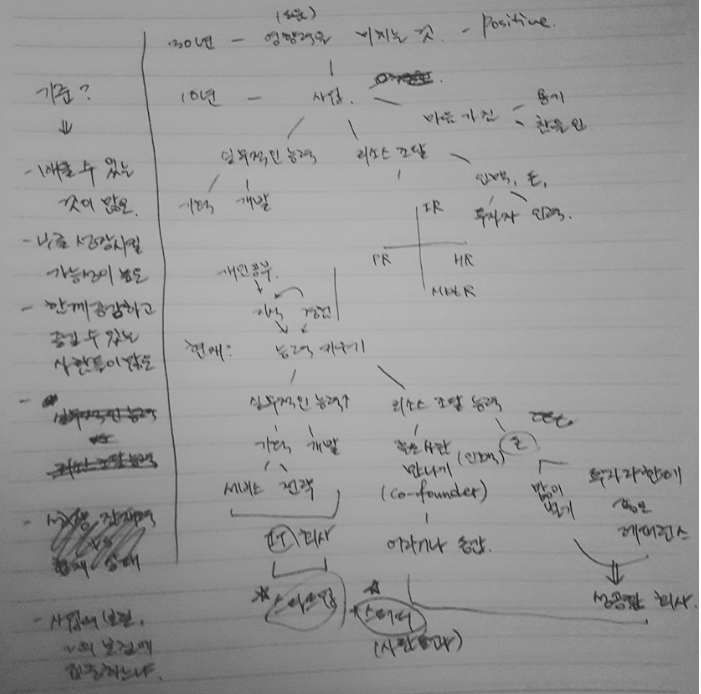 30년 - 영향력을 미치는 것. - positive.
기준?
10년 - 사업.
마음가짐
용기
실무적인 능력
리소스 조달
- 배울 수 있는
것이 많은.
기획 개발
인맥, 돈.
투자자 인맥.
IR
PR HR
- 나를 성장시킬
가능성이 높은
개인공부.
지식 경험
- 함께 공감하고
즐길 수 있는
사람들이 많은
현재? 능력 키우기
실무적인 능력↑ 리소스 조달 능력
실무적인 능력
리소스 조달 능력
돈
기획 개발
좋은 사람
만나기 (인맥)
(co-founder)
서비스 전략
많이
벌기
투자자한테
좋은
레퍼런스
IT 회사
vs
성공한 회사.
스타트업
스터디
(사람 )
- 사업의 보람,